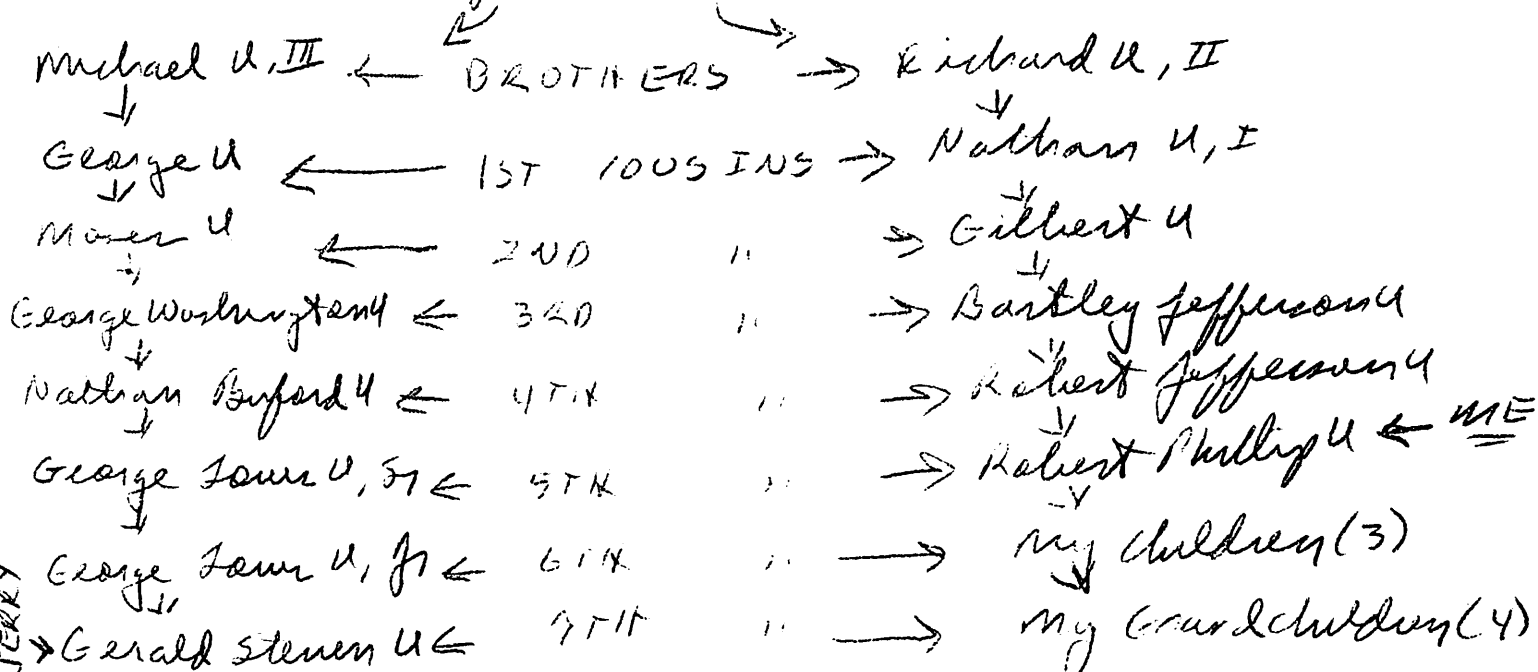 Michael U, III ← BROTHERS → Richard U, II
George U ← 1ST COUSINS → Nathan U, I
Moses U ← 2ND " → Gilbert U
George Washington U ← 3RD " → Bartley Jefferson U
Nathan Buford U ← 4TH " → Robert Jefferson U
George Louis U, Sr ← 5TH " → Robert Phillip U ← ME
George Louis U, Jr ← 6TH " → My children (3)
JERRY → Gerald Steven U ← 7TH " → My Grandchildren (4)